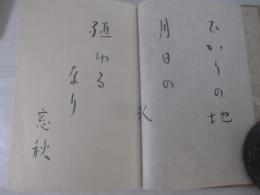 ひかりの地
月日の
氷
植ゆる
なり
窓秋